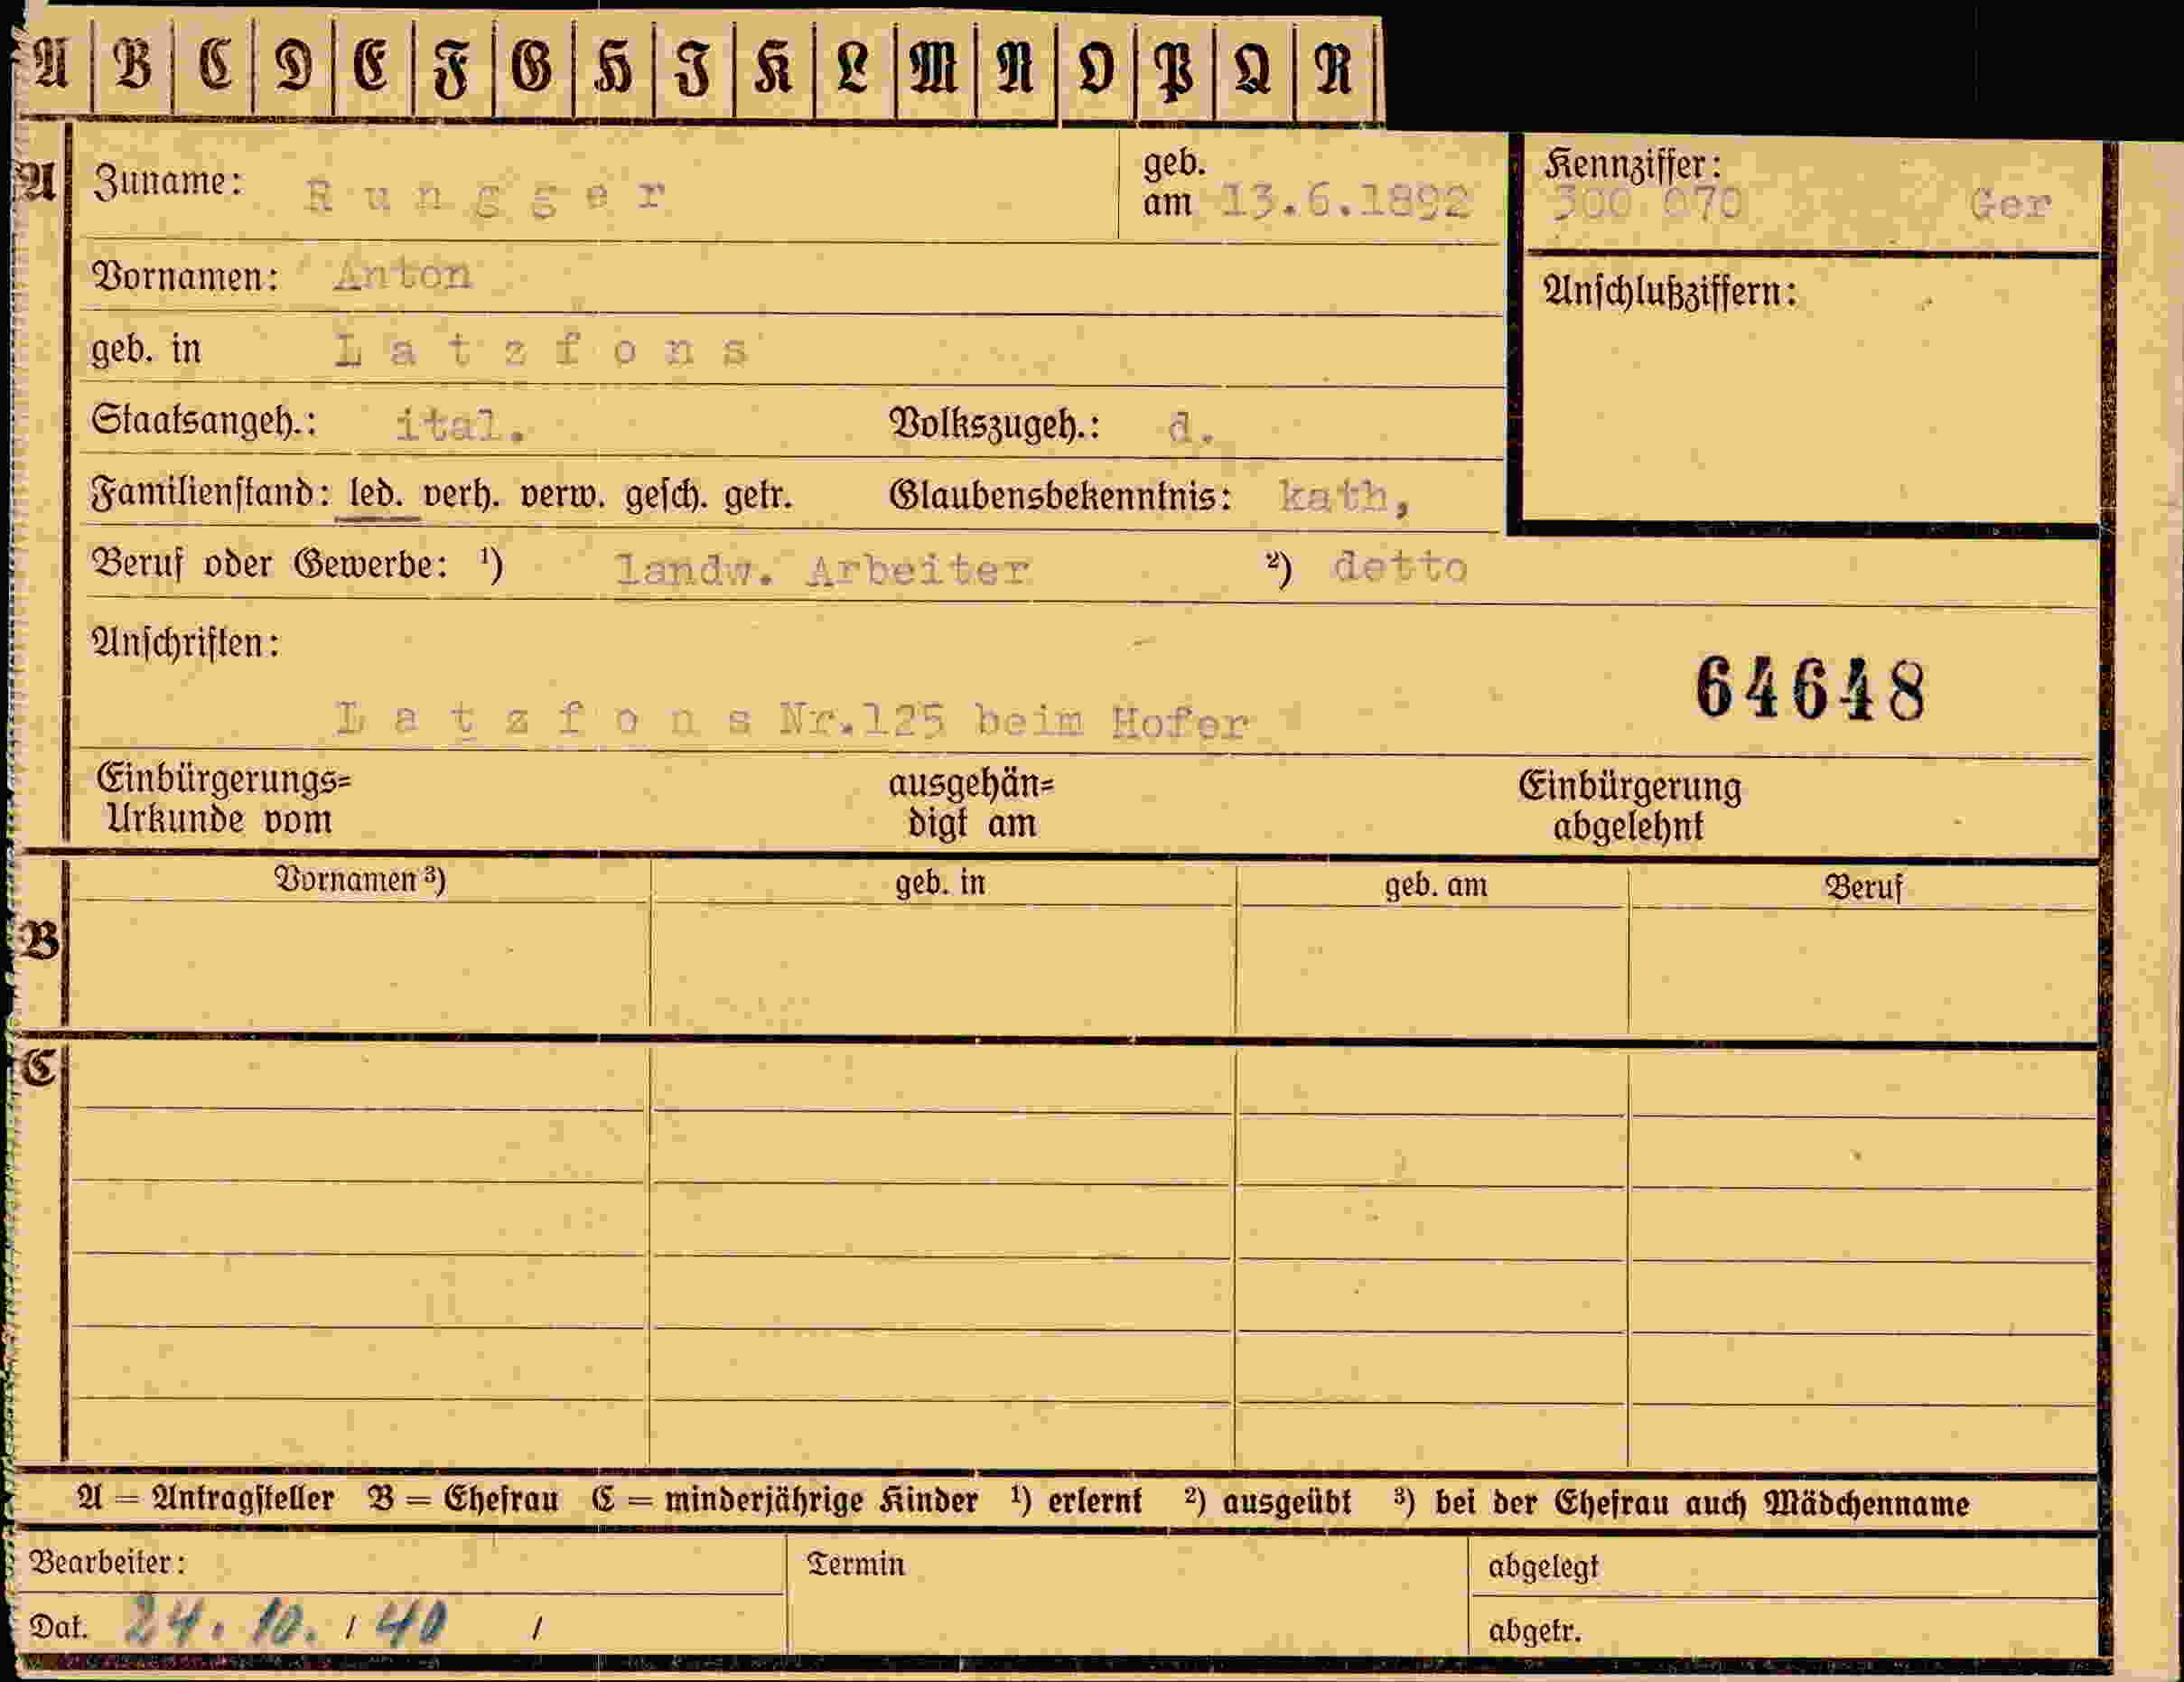 A B C D E F G H I K L M N O P Q R
A Zuname: Rungger geb. am 13.6.1892 Kennziffer: 300 070 Ger
Vornamen: Anton Anschlußziffern:
geb. in Latzfons
Staatsangeh.: ital. Volkszugeh.: d.
Familienstand: led. verh. verw. gesch. getr. Glaubensbekenntnis: kath,
Beruf oder Gewerbe: ¹) landw. Arbeiter ²) detto
Anschriften:
64648
Latzfons Nr.125 beim Hofer
Einbürgerungs= ausgehän= Einbürgerung
Urkunde vom digt am abgelehnt
Vornamen ³) geb. in geb. am Beruf
B
C
A = Antragsteller B = Ehefrau C = minderjährige Kinder ¹) erlernt ²) ausgeübt ³) bei der Ehefrau auch Mädchenname
Bearbeiter: Termin abgelegt
Dat. 24. 10. / 40 / abgetr.